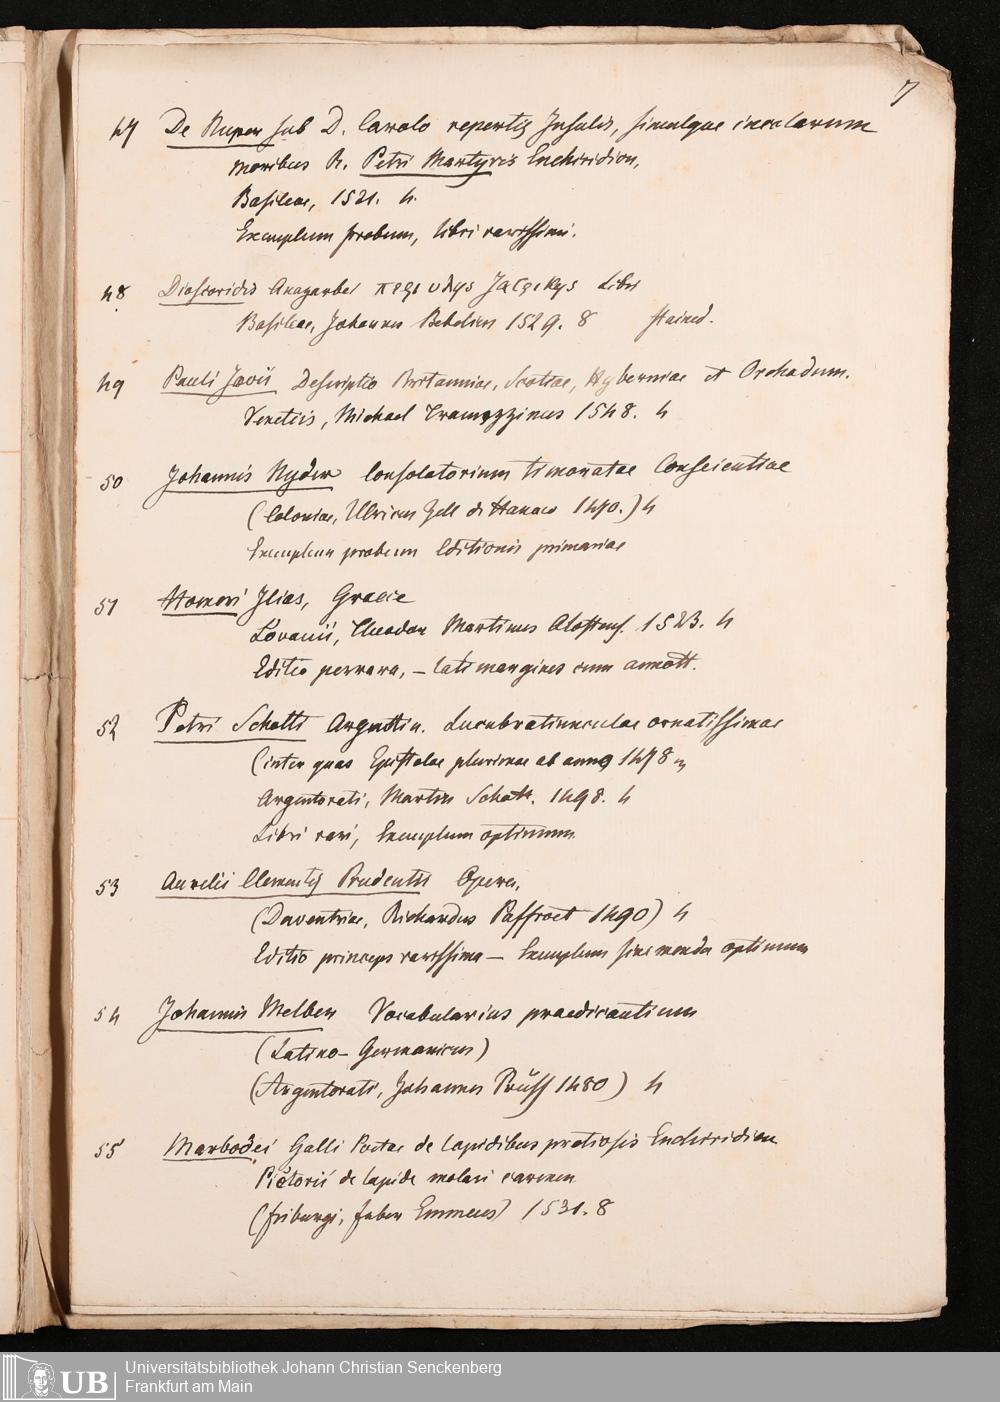 7
47 De Nuper sub D. Carolo repertis Insulis, simulque incolarum
moribus R. Petri Martyris Enchiridion,
Basileae, 1521. 4.
Exemplum probum, libri rarissimi.
48 Dioscoridis Anazarbei περι υλης Ιατρικης Libri
Basileae, Johannes Bebelius 1529. 8 stained.
49 Pauli Jovii Descriptio Britanniae, Scotiae, Hyberniae et Orchadum.
Venetiis, Michael Tramezzinus 1548. 4
50 Johannis Nyder Consolatorium timoratae Conscientiae
(Coloniae, Ulricus Zell de Hanau 1470.) 4
Exemplum probum Editionis primariae
51 Homeri Ilias, Graece
Lovanii, Theodor Martinus Alostens. 1523. 4
Editio perrara, – lati margines cum annott.
52 Petri Schotti Argentin. Lucubratiunculae ornatissimae
(inter quas Epistolae plurimae ab anno 1478
Argentorati, Martin Schott. 1498. 4
Libri rari, Exemplum optimum
53 Aurelii Clementis Prudentii Opera,
(Daventriae, Richardus Paffroet 1490) 4
Editio princeps rarissima – Exemplum sine menda optimum
54 Johannis Melber Vocabularius praedicantium
(Latino-Germanicus)
(Argentorati, Johannes Prüss 1480) 4
55 Marbodei Galli Poetae de lapidibus pretiosis Enchiridion
Pictorii de lapide molari carmen
(friburgi, faber Emmeus) 1531. 8
UB Universitätsbibliothek Johann Christian Senckenberg
Frankfurt am Main